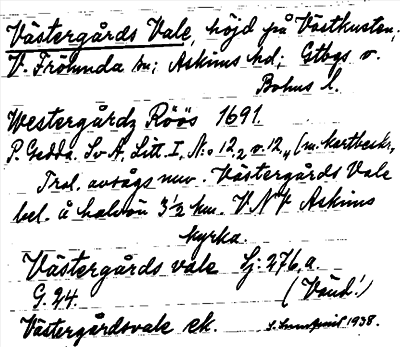 Västergårds Vale, höjd på Västkusten,
V. Frölunda sn; Askims hd; Gtbgs o.
Bohus l.
Westergårdz Röös 1691.
P. Gedda. Sv A, Litt. I, N:o 12,2 o. 12,4 (m. kartbeskr.,
Trol. avsågs nuv. Västergårds Vale
bel. å halvön 3 1/2 km. V.N.V. Askims
kyrka.
Västergårds vale Sj: 276, a.
G. 24. (Vänd!)
Västergårdsvale ek. 1938.